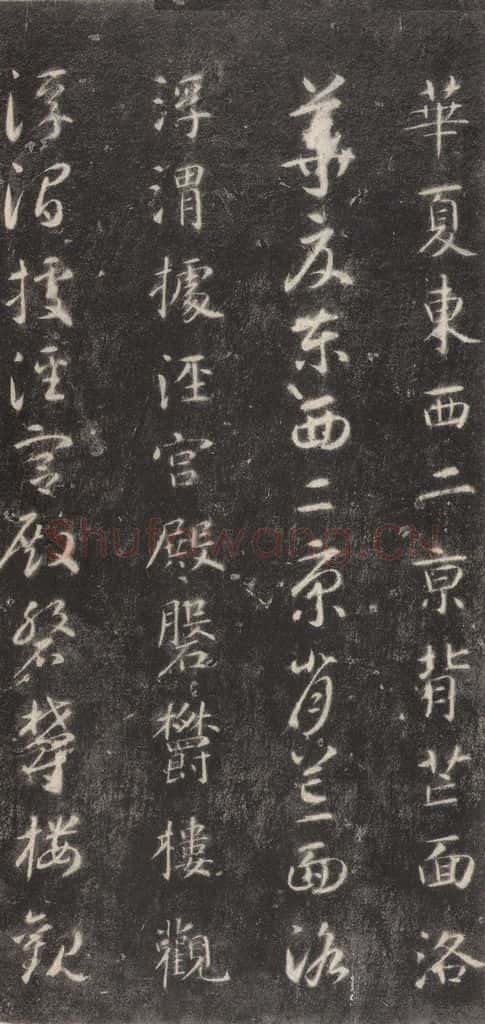 華夏東西二京背芒面洛
華夏東西二京背芒面洛
浮渭據涇宮殿磐欝樓觀
浮渭據涇宮殿磐欝樓觀
Shufawang.CN